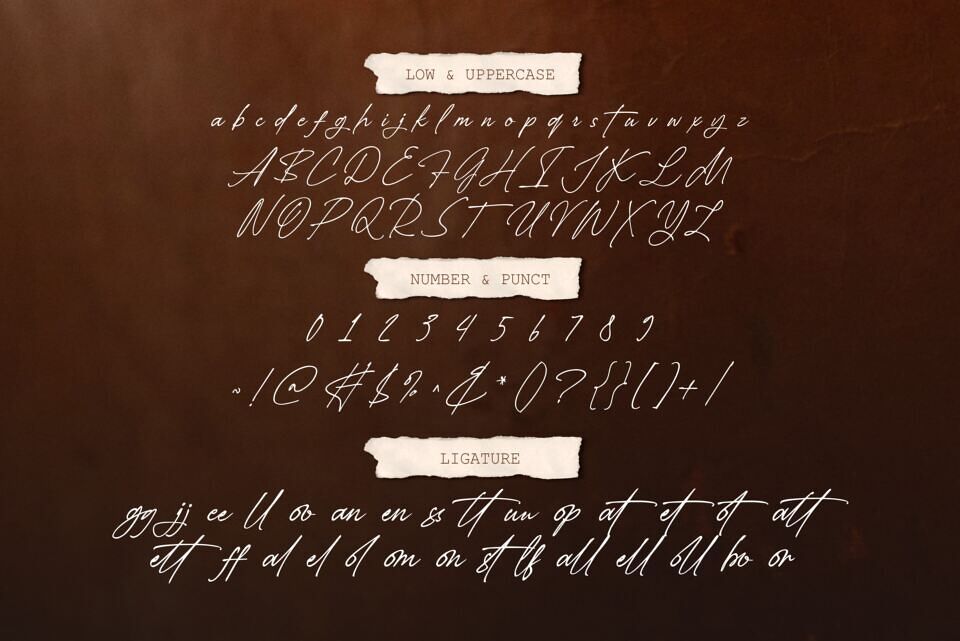 LOW & UPPERCASE
a b c d e f g h i j k l m n o p q r s t u v w x y z
A B C D E F G H I J K L M
N O P Q R S T U V W X Y Z
NUMBER & PUNCT
0 1 2 3 4 5 6 7 8 9
~ ! @ # $ % ^ & * ( ) ? { } [ ] + /
LIGATURE
gg jj ee ll oo an en ss tt uu op at et ot att
ett ff al el ol om on st lf all ell oll bo or